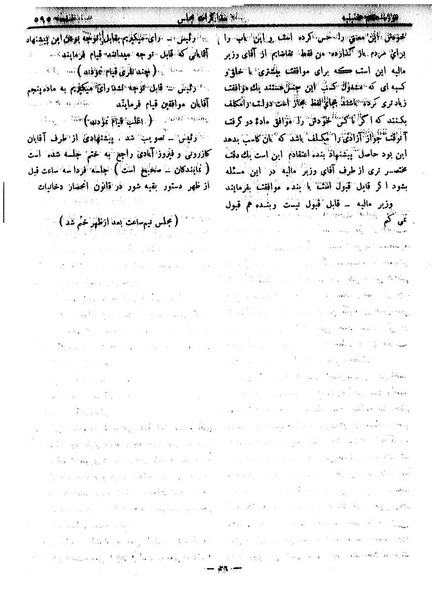 مذاکرات مجلس
صفحه ۵۹۵
خودش این معنی را حس کرده است و این باب را
برای مردم باز گذارده من فقط تقاضایم از آقای وزیر
مالیه این است که برای موافقت بیشتری با خلق و
کسبه ای که مشغول کسب این جنس هستند یك موافقت
زیادتری کرده باشند بجای لفظ مجاز است دولت را مکلف
بکنند که اگر کسی خودش را موافق ماده دو گرفت
آنوقت جواز آزادی را مکلف باشد که بآن کاسب بدهد
این بود حاصل پیشنهاد بنده اعتقادم این است یك دقت
مختصر تری از طرف آقای وزیر مالیه در این مسئله
بشود اگر قابل قبول است با بنده موافقت بفرمایند
وزیر مالیه ـ قابل قبول نیست و بنده هم قبول
نمی کنم
رئیس ـ رأی میگیریم بقابل توجه بودن این پیشنهاد
آقایانی که قابل توجه میدانند قیام فرمایند
( چند نفری قیام نمودند )
رئیس ـ قابل توجه نشد رأی میگیریم به ماده پنجم
آقایان موافقین قیام فرمایند
( اغلب قیام نمودند )
رئیس ـ تصویب شد . پیشنهادی از طرف آقایان
کازرونی و فیروز آبادی راجع به ختم جلسه شده است
( نمایندگان ـ صحیح است ) جلسه فردا سه ساعت قبل
از ظهر دستور بقیه شور در قانون انحصار دخانیات
( مجلس نیم ساعت بعد از ظهر ختم شد )
— ۲۶ —